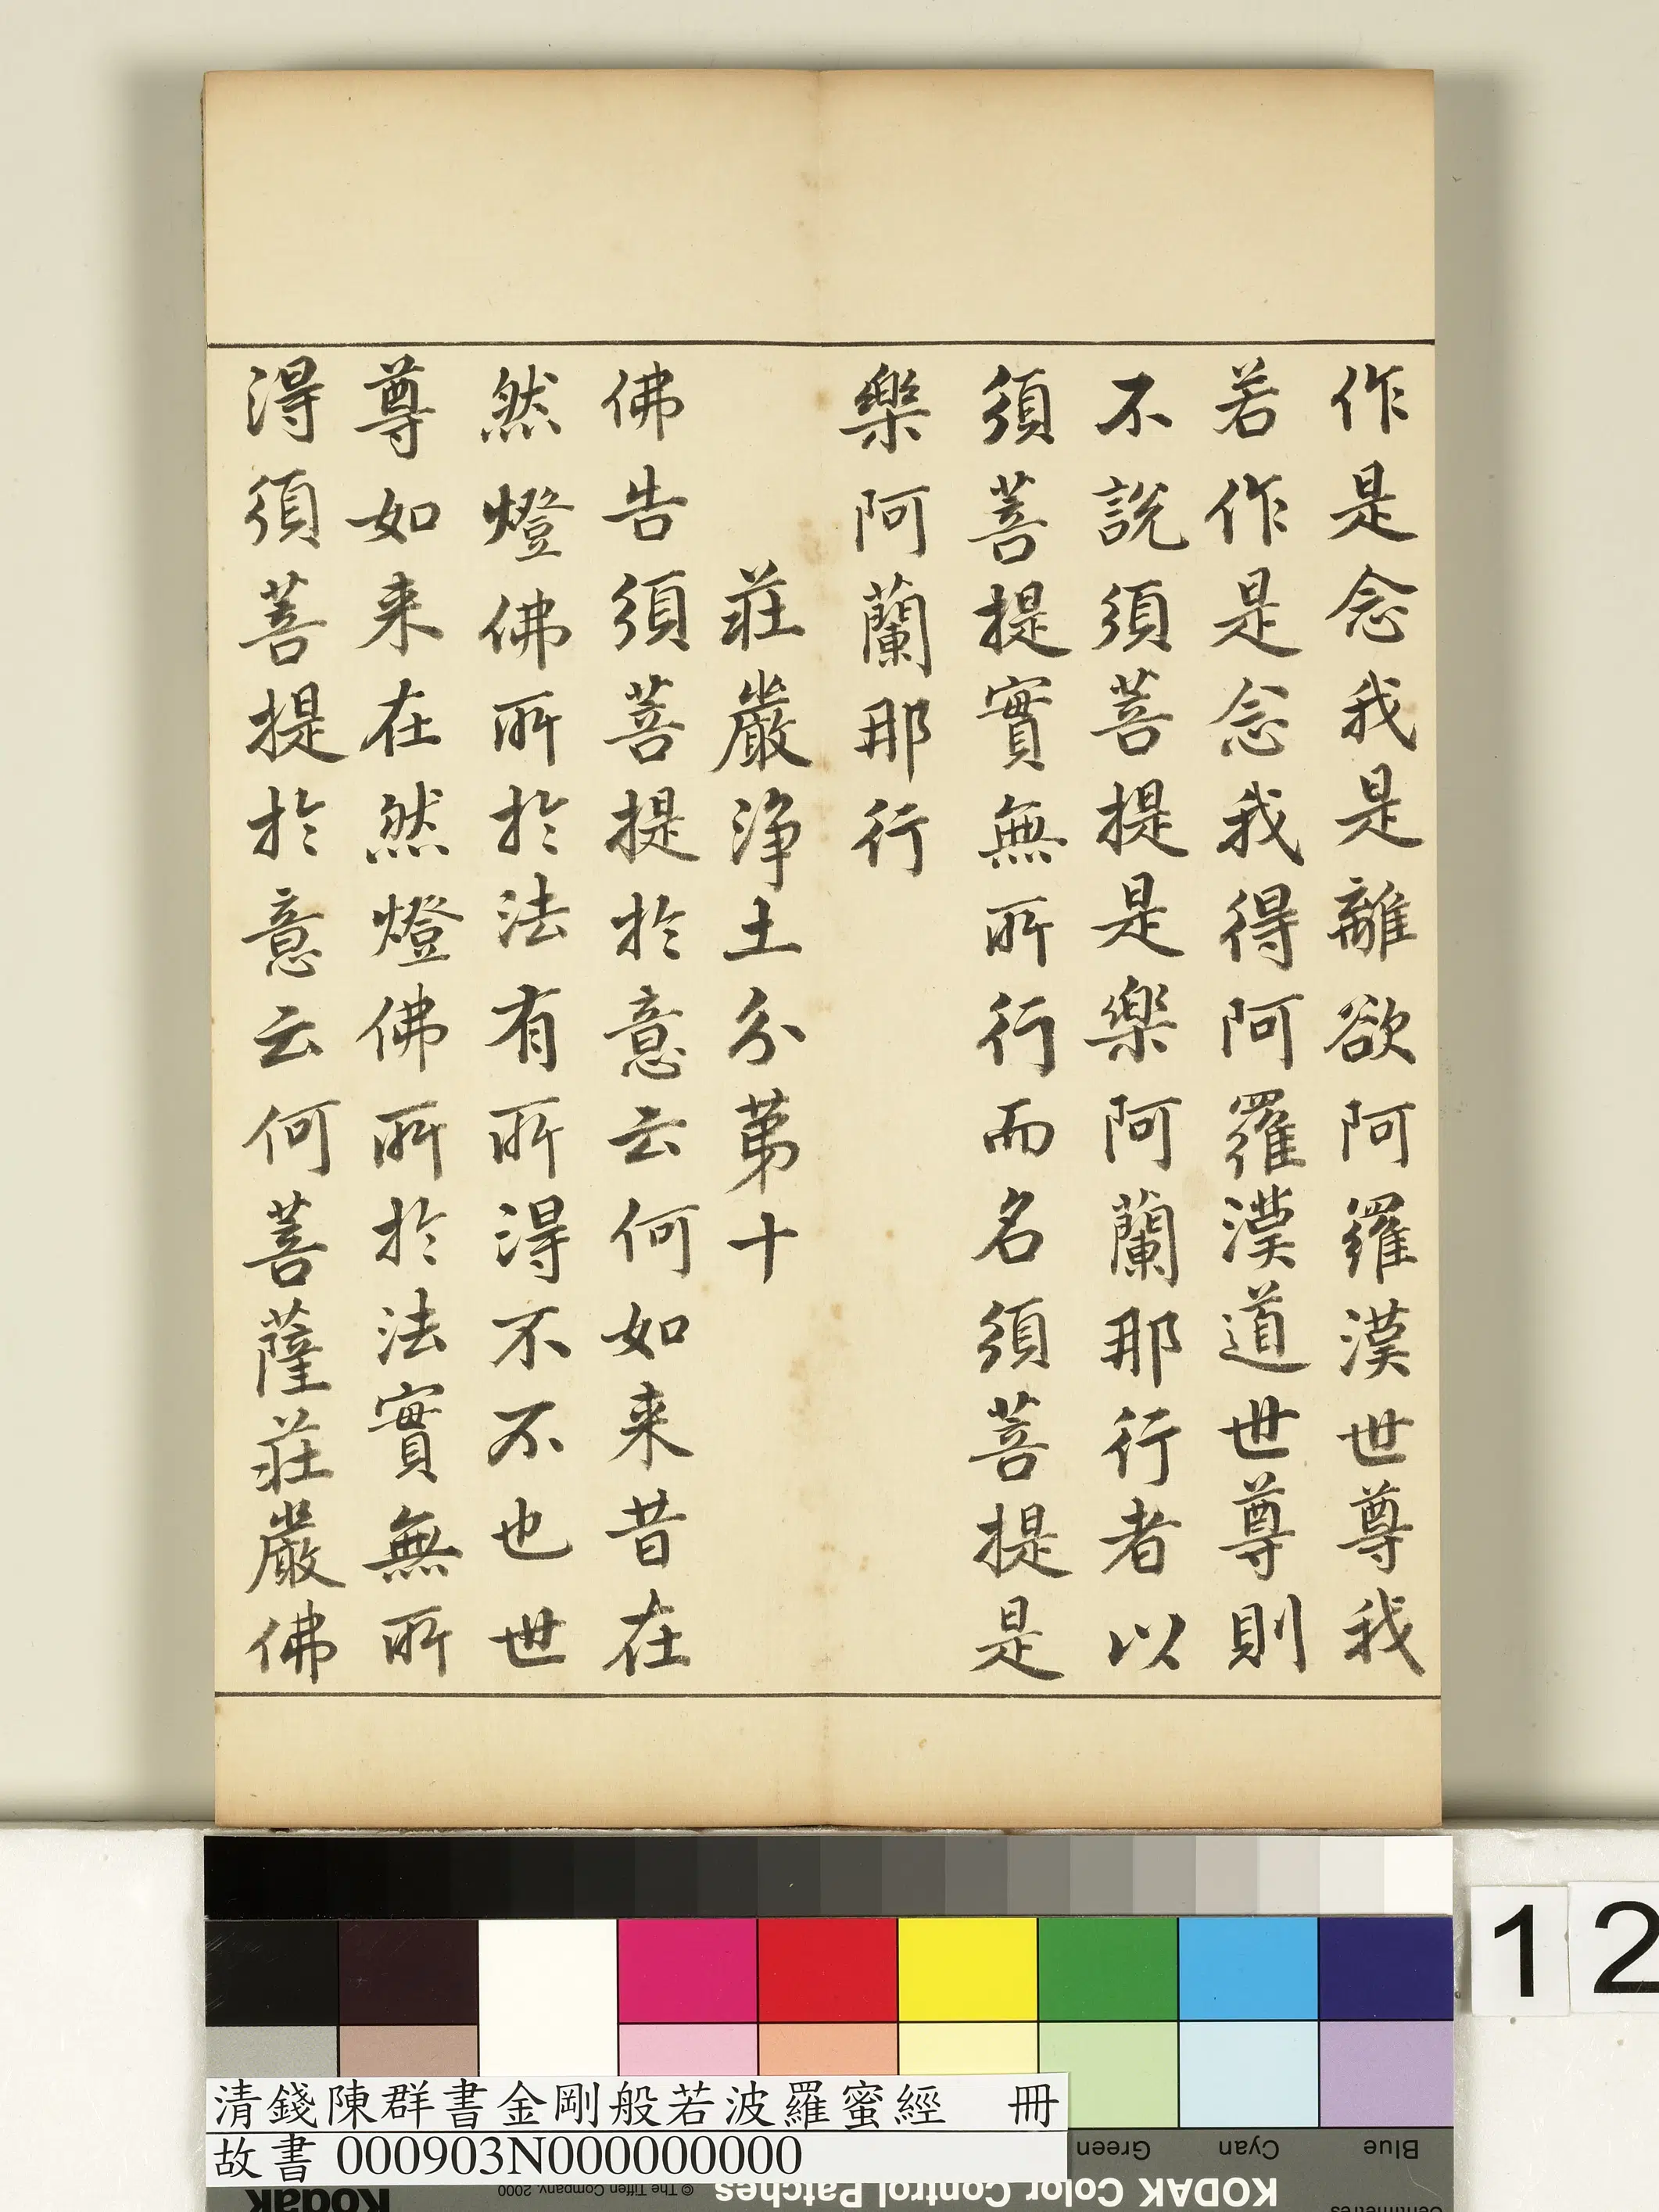 作是念我是離欲阿羅漢世尊我
若作是念我得阿羅漢道世尊則
不說須菩提是樂阿蘭那行者以
須菩提實無所行而名須菩提是
樂阿蘭那行
莊嚴淨土分第十
佛告須菩提於意云何如来昔在
然燈佛所於法有所得不不也世
尊如来在然燈佛所於法實無所
得須菩提於意云何菩薩莊嚴佛
12
清錢陳群書金剛般若波羅蜜經 冊
故書 000903N000000000
Blue
Cyan
Green
KODAK Color Control Patches
© The Tiffen Company, 2000
Kodak
Centimetres